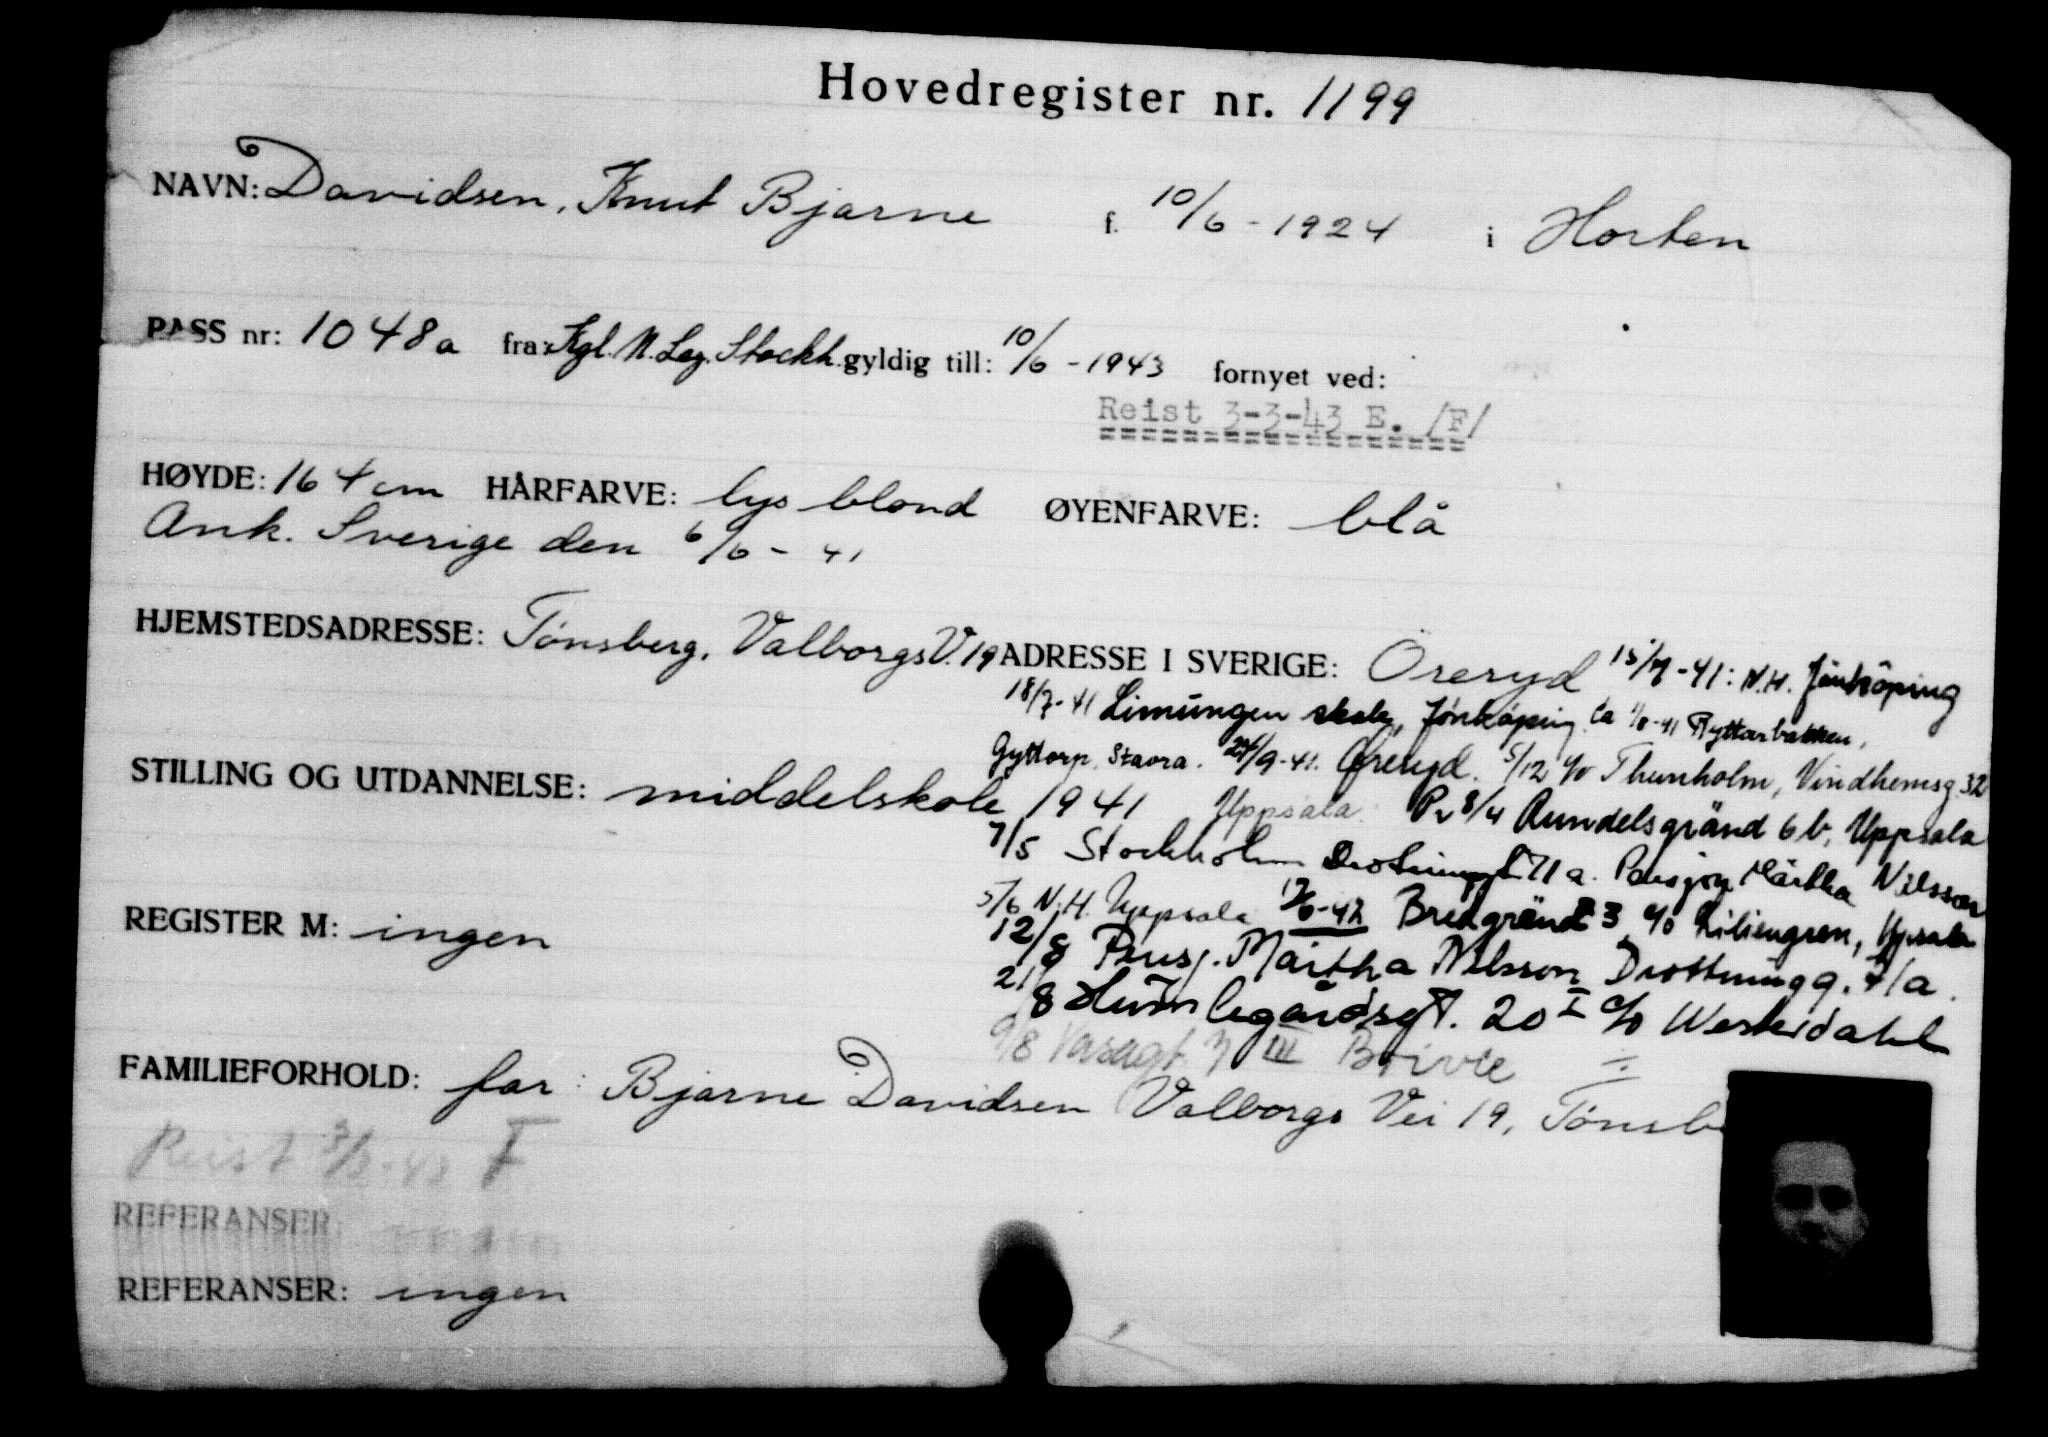 Hovedregister nr. 1199
NAVN: Davidsen, Knut Bjarne f. 10/6 - 1924 i Horten
PASS nr: 1048a fra: Kgl. N. Leg. Stockh. gyldig till: 10/6 - 1943 fornyet ved:
Reist 3-3-43 E. /F/
HØYDE: 164 cm HÅRFARVE: lys blond ØYENFARVE: blå
Ank. Sverige den 6/6 - 41
HJEMSTEDSADRESSE: Tønsberg, Valborgs V. 19 ADRESSE I SVERIGE: Öreryd 15/7-41: N.H. Jönköping
18/7-41 Limungen skole, Jönköping. ca 1/8-41 Ryttarbakken,
Gyttorp, Staora. 24/9-41. Öreryd. 5/12 c/o Thunholm, Vindhemsg. 32
STILLING OG UTDANNELSE: middelskole 1941 Uppsala. 8/4 Rundelsgränd 6 b, Uppsala
7/5 Stockholm 71 a. Pensjon Märtha Nilsson
5/6 N.H. Uppsala -42 Bredgränd 3 c/o Liliengren, Upsala
REGISTER M: ingen
12/8 Pensj. Märtha Nilsson Drottningg. 71a.
21/8 Humlegårdsgt. 20 I c/o Westerdahl
9/8 Vasagt. 7 III
FAMILIEFORHOLD: far: Bjarne Davidsen Valborgs Vei 19, Tønsb
Reist 3/3-43 F
REFERANSER: ingen
REFERANSER: ingen